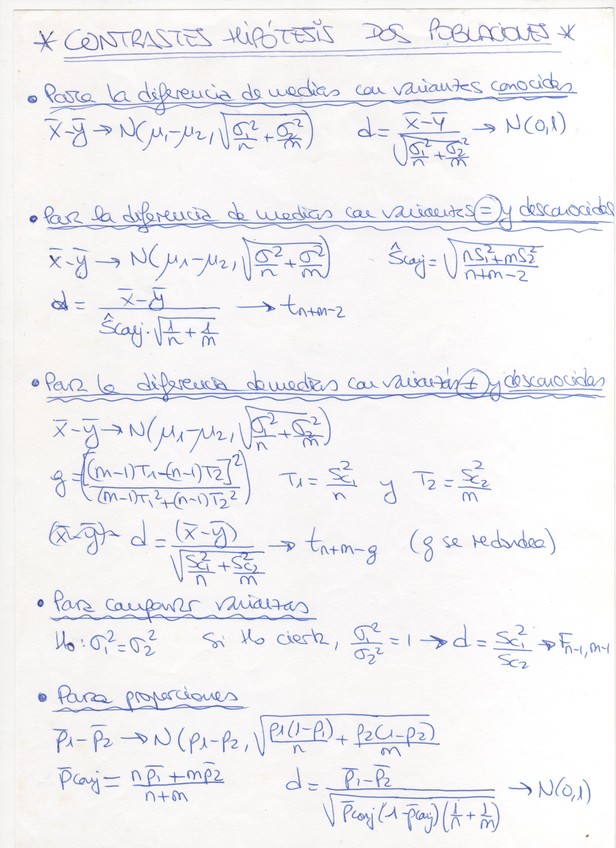 * CONTRASTES HIPÓTESIS DOS POBLACIONES *
• Para la diferencia de medias con varianzas conocidas
x̄-ȳ → N(μ1-μ2, √(σ1²/n + σ2²/m)) d = (x̄-ȳ)/√(σ1²/n + σ2²/m) → N(0,1)
• Para la diferencia de medias con varianzas = y desconocidas
x̄-ȳ → N(μ1-μ2, √(σ²/n + σ²/m)) Ŝconj = √((nS1²+mS2²)/(n+m-2))
d = (x̄-ȳ)/(Ŝconj·√(1/n + 1/m)) → tn+m-2
• Para la diferencia de medias con varianzas ≠ y desconocidas
x̄-ȳ → N(μ1-μ2, √(σ1²/n + σ2²/m))
g = [(m-1)T1-(n-1)T2]²/((m-1)T1²+(n-1)T2²) T1 = Sc1²/n y T2 = Sc2²/m
(x̄-ȳ)- d = (x̄-ȳ)/√(Sc1²/n + Sc2²/m) → tn+m-g (g se redondea)
• Para comparar varianzas
Ho: σ1²=σ2² Si Ho cierta, σ1²/σ2² = 1 → d = Sc1²/Sc2 → Fn-1, m-1
• Para proporciones
p̄1-p̄2 → N(p1-p2, √(p1(1-p1)/n + p2(1-p2)/m)
p̄conj = (np̄1+mp̄2)/(n+m) d = (p̄1-p̄2)/√(p̄conj(1-p̄conj)(1/n + 1/m)) → N(0,1)